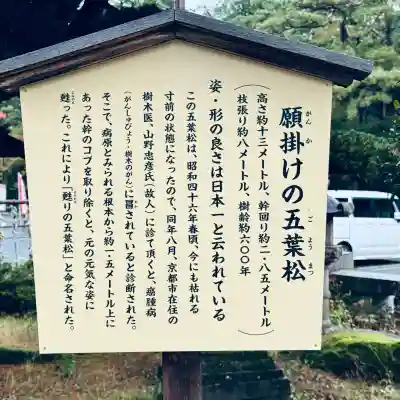 願掛けの五葉松
がんか
ごようまつ
(高さ約十三メートル、幹回り約二・八五メートル
枝張り約八メートル、樹齢約六〇〇年)
姿・形の良さは日本一と云われている
この五葉松は、昭和四十六年春頃、今にも枯れる
寸前の状態になったので、同年八月、京都市在住の
樹木医、山野忠彦氏(故人)に診て頂くと、癌腫病
(がんしゅびょう・樹木のがん)に罹されていると診断された。
そこで、病原とみられる根本から約一・五メートル上に
あった幹のコブを取り除くと、元の元気な姿に
甦った。これにより「甦りの五葉松」と命名された。